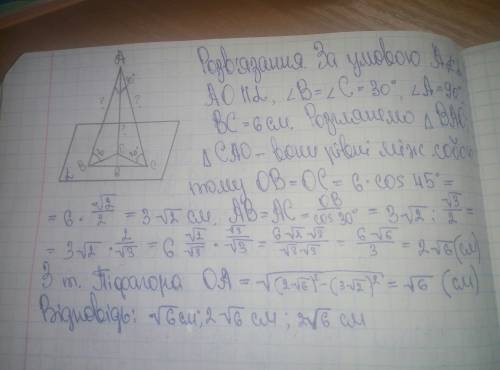 A
90°
?
?
?
B
30°
O
30°
C
6
L
Розв'язання. За умовою A∉α,
AO ⊥ α, ∠B=∠C=30°, ∠A=90°
BC=6 см. Розглянемо △BAO,
△CAO – вони рівні між собою
тому OB=OC= 6·cos 45°=
= 6·√2/2 = 3√2 см. AB=AC= OB/cos30° = 3√2 : √3/2 =
= 3√2 · 2/√3 = 6 √2/√3 · √3/√3 = 6√2·√3/√3·√3 = 6√6/3 = 2√6 (см)
З т. Піфагора OA = √((2√6)²-(3√2)²) = √6 (см)
Відповідь: √6 см; 2√6 см; 2√6 см